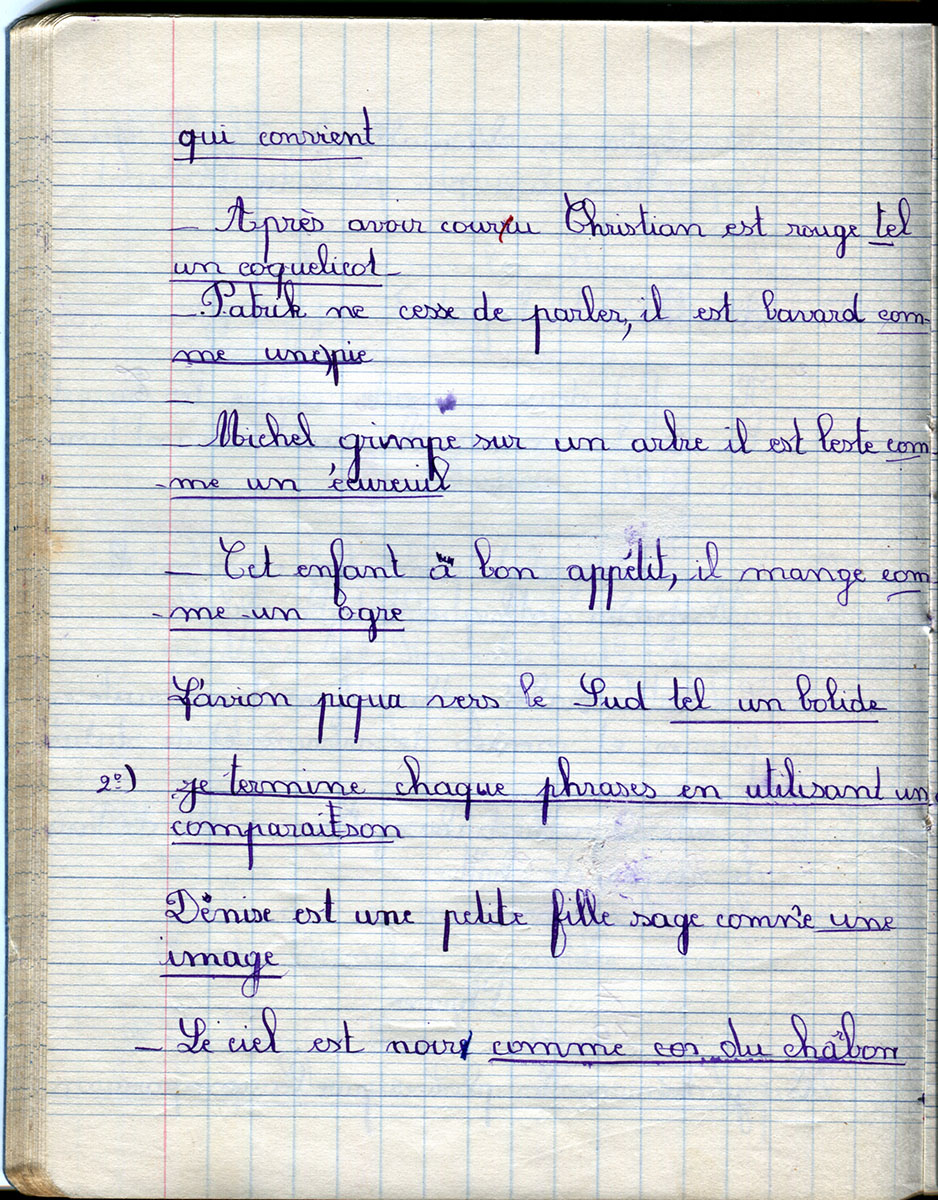 qui convient
_ Après avoir couru Christian est rouge tel
un coquelicot_
_ Patrik ne cesse de parler, il est bavard com-
me une pie
_ Michel grimpe sur un arbre il est leste com-
-me un écureuil
_ Cet enfant à bon appétit, il mange com
-me un ogre
L'avion piqua vers le Sud tel un bolide
2º) je termine chaque phrases en utilisant un
comparaitson
Dénise est une petite fille sage comme une
image
_ Le ciel est noir comme du châbon